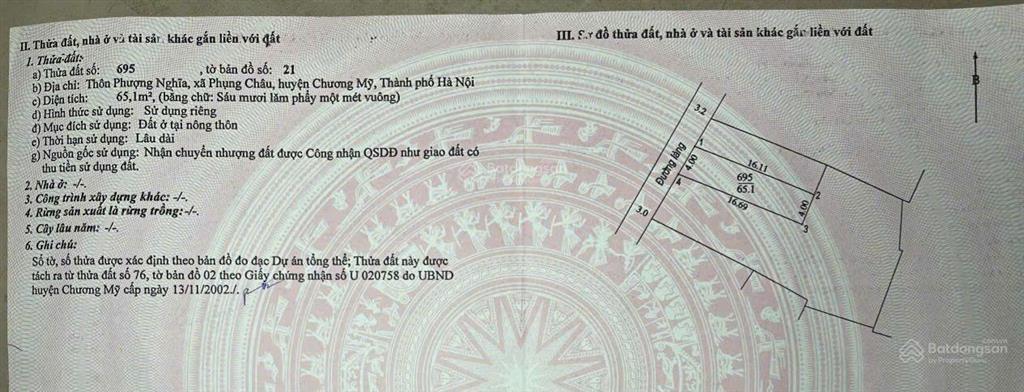 II. Thửa đất, nhà ở và tài sản khác gắn liền với đất
1. Thửa đất:
a) Thửa đất số: 695 , tờ bản đồ số: 21
b) Địa chỉ: Thôn Phượng Nghĩa, xã Phụng Châu, huyện Chương Mỹ, Thành phố Hà Nội
c) Diện tích: 65,1m², (bằng chữ: Sáu mươi lăm phẩy một mét vuông)
d) Hình thức sử dụng: Sử dụng riêng
đ) Mục đích sử dụng: Đất ở tại nông thôn
e) Thời hạn sử dụng: Lâu dài
g) Nguồn gốc sử dụng: Nhận chuyển nhượng đất được Công nhận QSDĐ như giao đất có
thu tiền sử dụng đất.
2. Nhà ở: -/-.
3. Công trình xây dựng khác: -/-.
4. Rừng sản xuất là rừng trồng:-/-.
5. Cây lâu năm: -/-.
6. Ghi chú:
Số tờ, số thửa được xác định theo bản đồ đo đạc Dự án tổng thể; Thửa đất này được
tách ra từ thửa đất số 76, tờ bản đồ 02 theo Giấy chứng nhận số U 020758 do UBND
huyện Chương Mỹ cấp ngày 13/11/2002./.
III. Sơ đồ thửa đất, nhà ở và tài sản khác gắn liền với đất
B
3.2
Đường làng
1
4.00
16.11
695
65.1
2
4
16.69
4.00
3
3.0
Batdongsan
.com.vn
by PropertyGuru